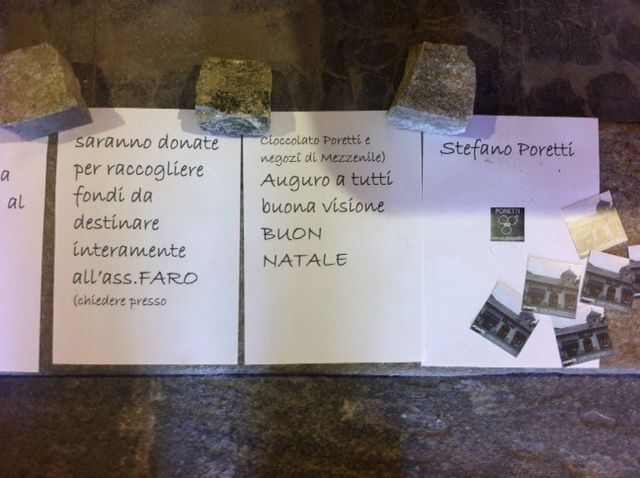 a
al
saranno donate
per raccogliere
fondi da
destinare
interamente
all'ass.FARO
(chiedere presso
Cioccolato Poretti e
negozi di Mezzenile)
Auguro a tutti
buona visione
BUON
NATALE
Stefano Poretti
PORETTI